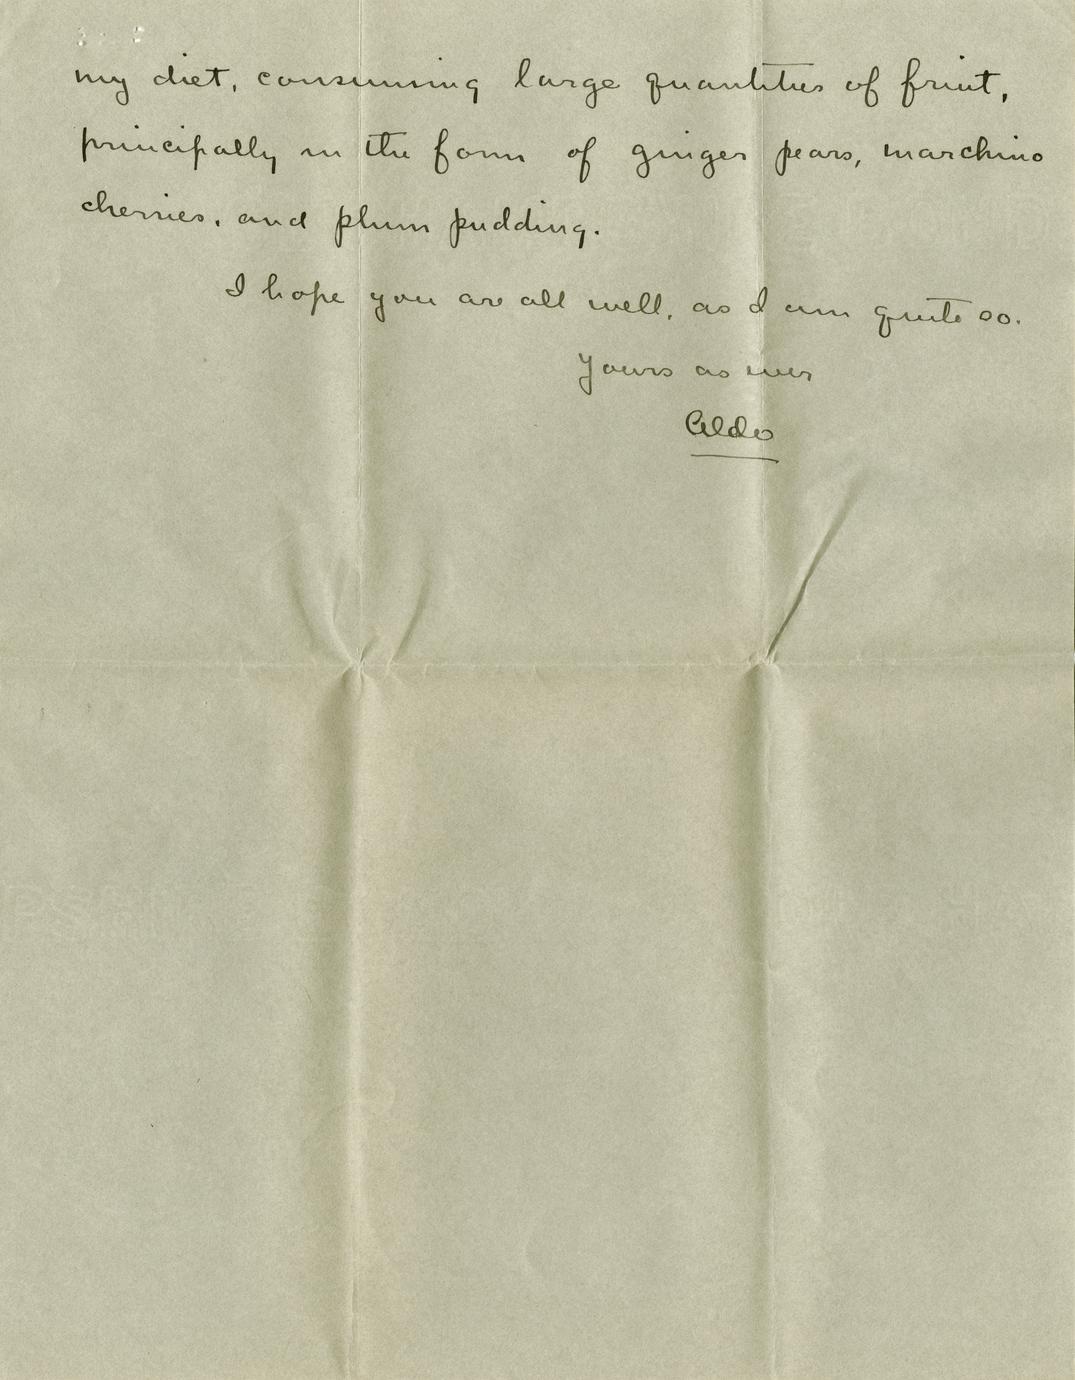 my diet, consuming large quantities of fruit,
principally in the form of ginger pears, marchino
cherries, and plum pudding.
I hope you are all well, as I am quite so.
Yours as ever
Aldo